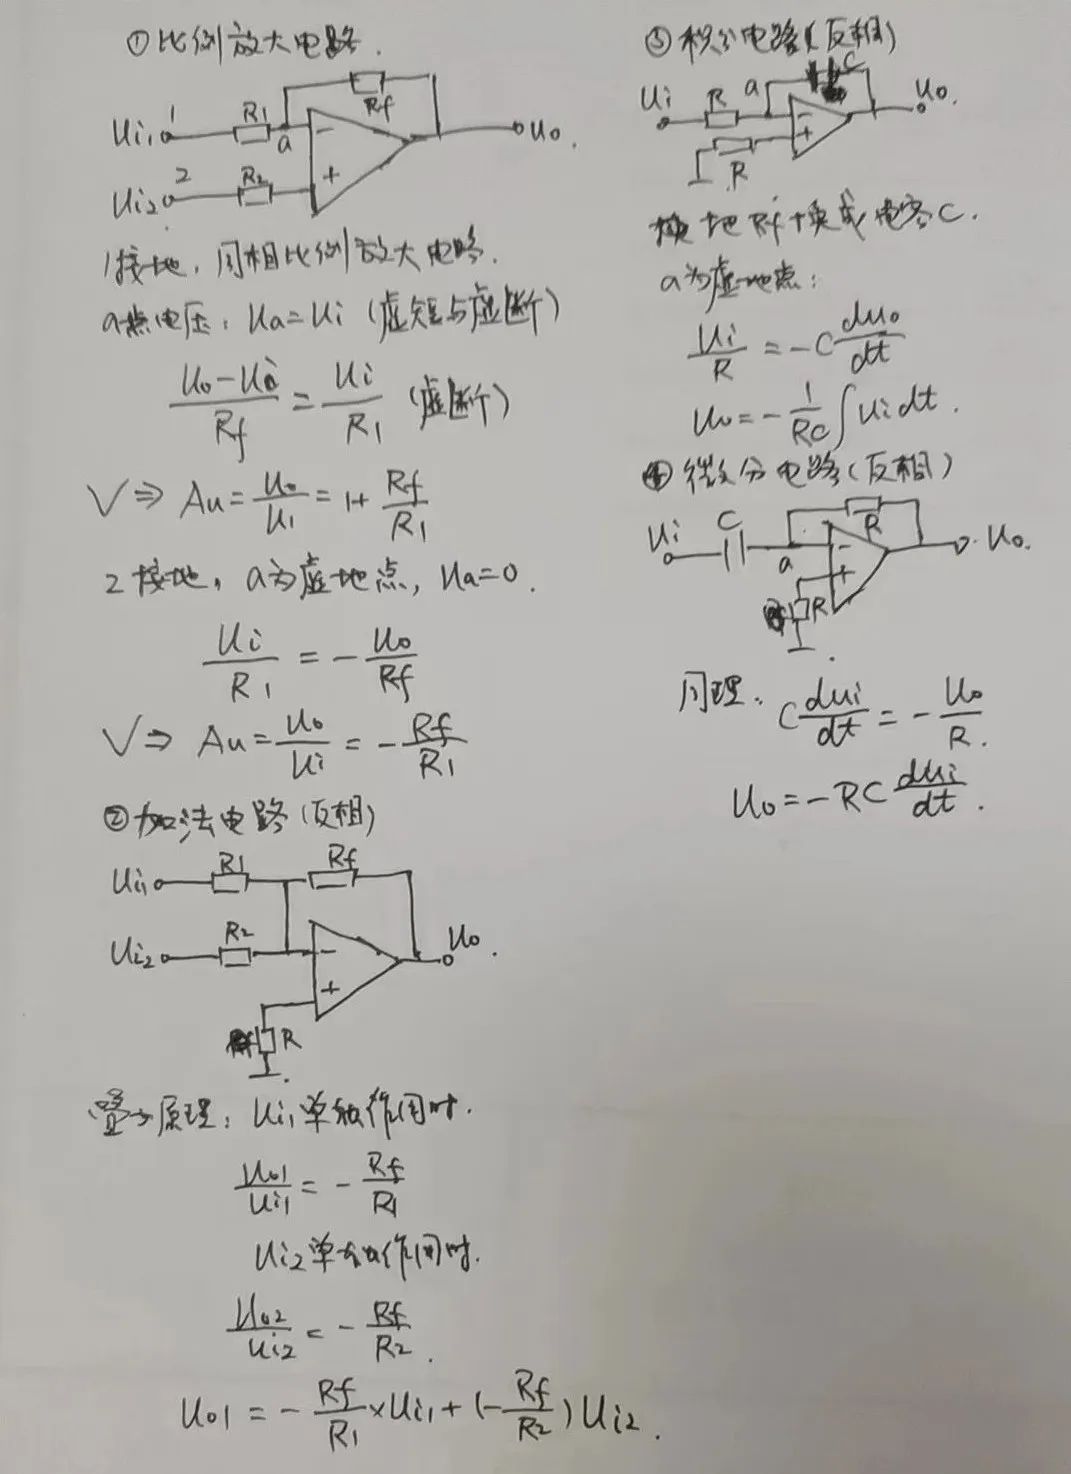 ①比例放大电路.
Rf
Ui₁ 1 R1 a - U₀.
Ui₂ 2 R₂ +
1接地,同相比例放大电路.
a点电压: Ua=Ui (虚短与虚断)
(U₀-Ua)/Rf = Ui/R1 (虚断)
V⇒ Au = U₀/U₁ = 1+ Rf/R1
2接地, a为虚地点, Ua=0.
Ui/R1 = - U₀/Rf
V⇒ Au = U₀/Ui = - Rf/R1
②加法电路(反相)
Ui₁ R1 Rf
Ui₂ R₂ - U₀.
+
R
叠加原理: Ui₁单独作用时.
U₀1/Ui1 = - Rf/R1
Ui2单独作用时.
U₀2/Ui2 = - Rf/R2.
U₀1 = - Rf/R1 × Ui1 + (- Rf/R2) Ui2.
③积分电路(反相)
C
Ui R a - U₀.
+
R
地Rf换成电容C.
a为虚地点:
Ui/R = -C du₀/dt
U₀ = - 1/RC ∫ Ui dt.
④微分电路(反相)
R
Ui C a - U₀.
+
R
同理. C dui/dt = - U₀/R.
U₀ = -RC dUi/dt.